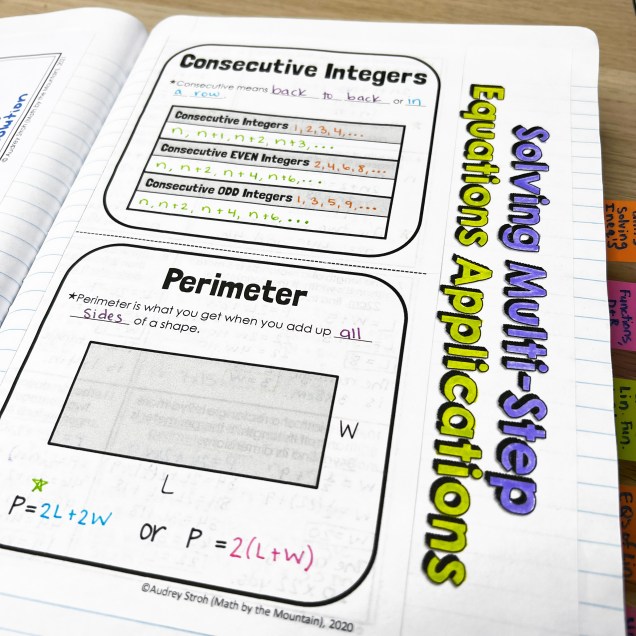 Consecutive Integers
*Consecutive means back to back or in
a row.
Consecutive Integers 1, 2, 3, 4, ...
n, n+1, n+2, n+3, ...
Consecutive EVEN Integers 2, 4, 6, 8, ...
n, n+2, n+4, n+6, ...
Consecutive ODD Integers 1, 3, 5, 9, ...
n, n+2, n+4, n+6, ...
Perimeter
*Perimeter is what you get when you add up all
sides of a shape.
W
L
P=2L+2W or P =2(L+W)
©Audrey Stroh (Math by the Mountain), 2020
Solving Multi-Step
Equations Applications
Solving
Ineqs
Functions,
D+R
Lin. Fun.